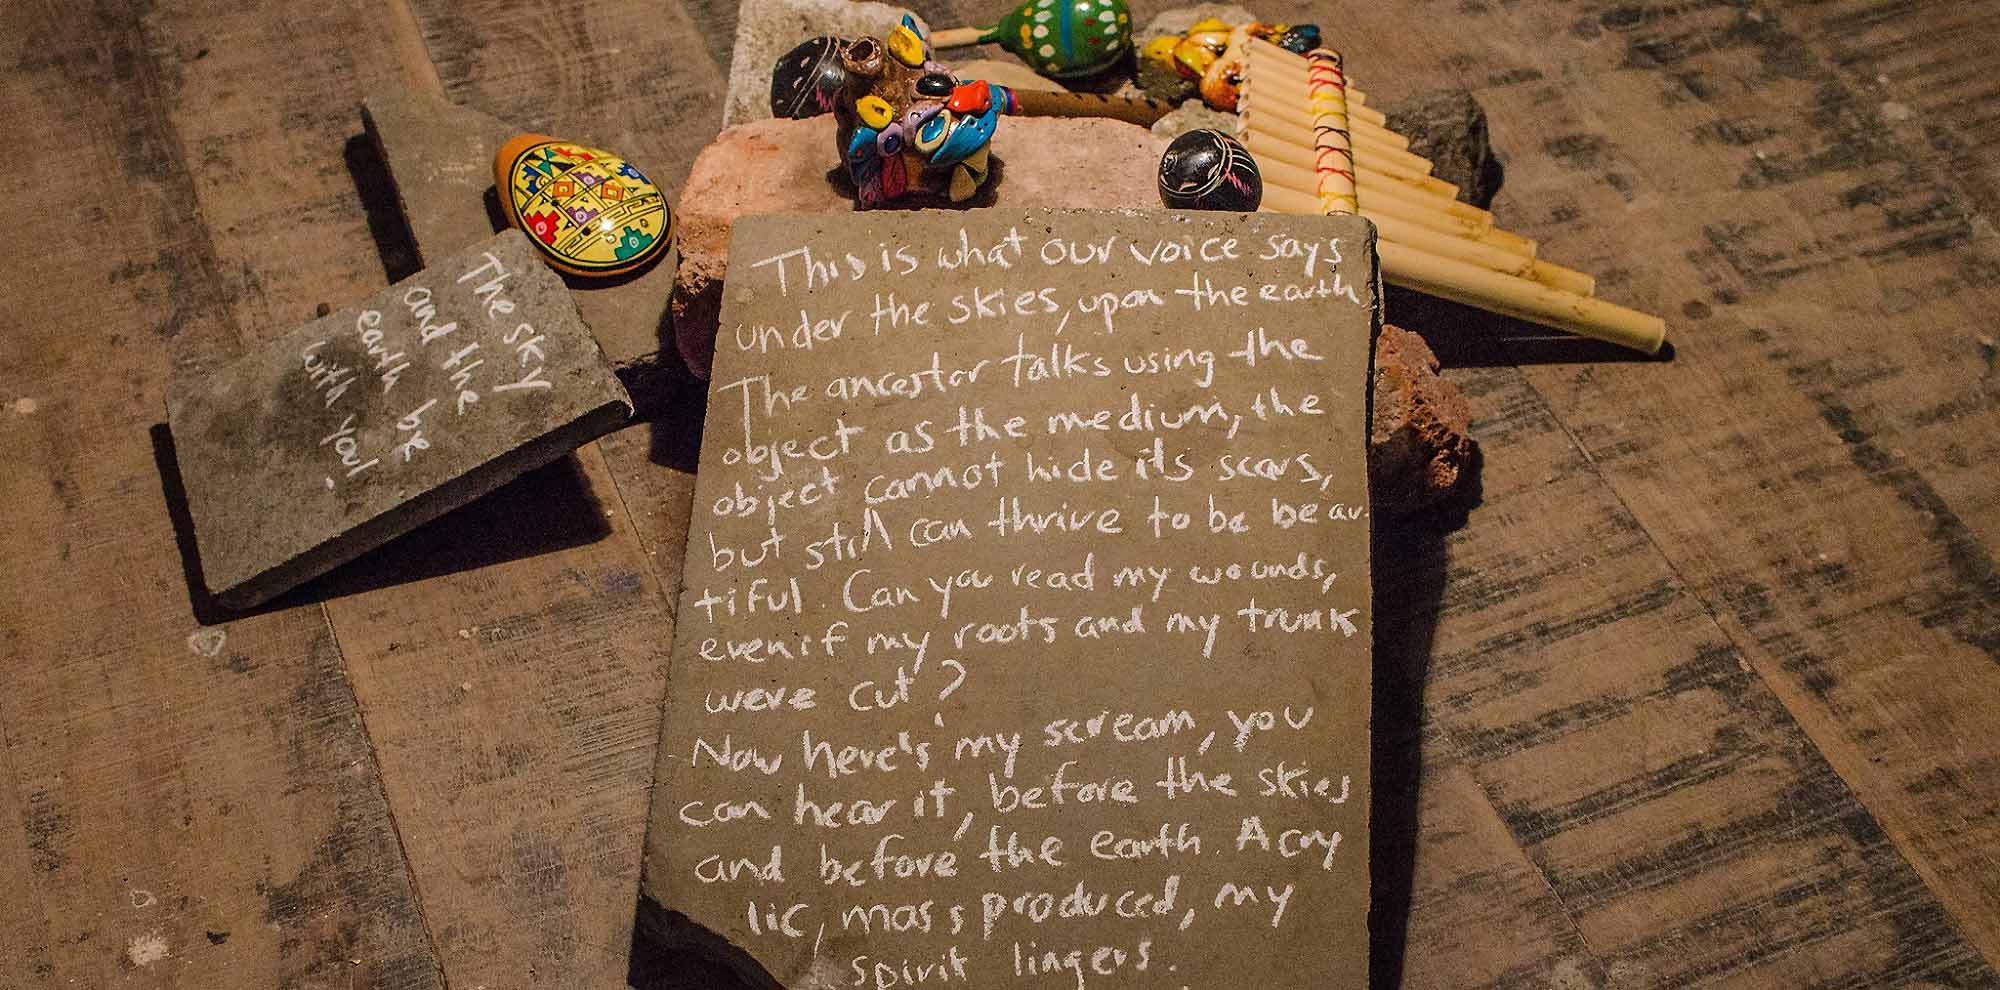 The sky
and the
earth be
with you!
This is what our voice says
under the skies, upon the earth
The ancestor talks using the
object as the medium, the
object cannot hide its scars,
but still can thrive to be beau-
tiful. Can you read my wounds,
even if my roots and my trunk
were cut?
Now here's my scream, you
can hear it, before the skies
and before the earth. Acry
lic, mass produced, my
spirit lingers.